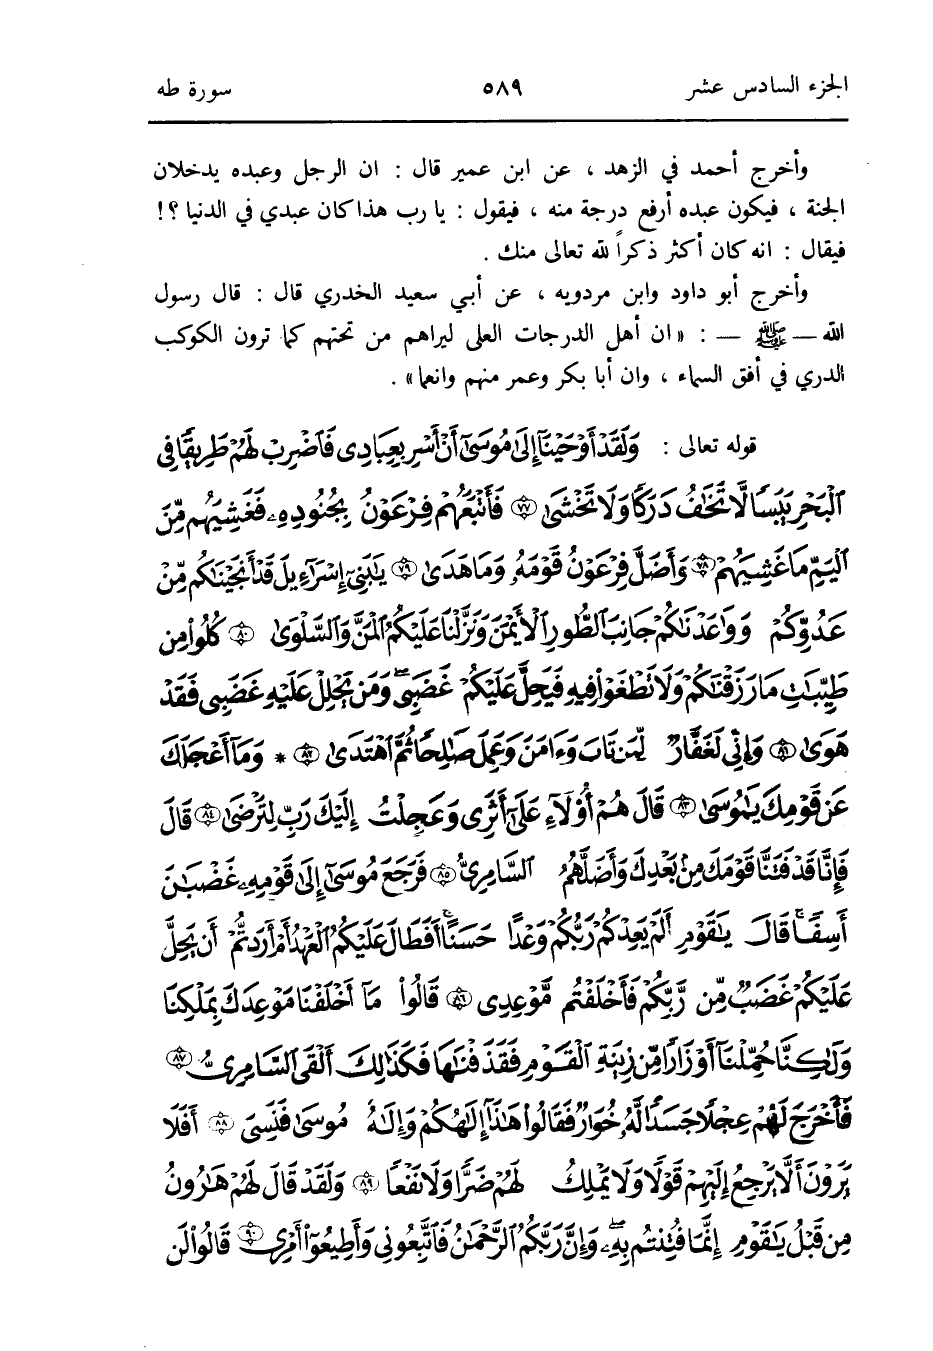 الجزء السادس عشر ٥٨٩ سورة طه
وأخرج أحمد في الزهد ، عن ابن عمير قال : ان الرجل وعبده يدخلان
الجنة ، فيكون عبده أرفع درجة منه ، فيقول : يا رب هذا كان عبدي في الدنيا ؟!
فيقال : انه كان أكثر ذكراً لله تعالى منك .
وأخرج أبو داود وابن مردويه ، عن أبي سعيد الخدري قال : قال رسول
الله — ﷺ — : « ان أهل الدرجات العلى ليراهم من تحتهم كما ترون الكوكب
الدري في أفق السماء ، وان أبا بكر وعمر منهم وانعما » .
قوله تعالى : وَلَقَدْ أَوْحَيْنَآ إِلَىٰ مُوسَىٰٓ أَنْ أَسْرِ بِعِبَادِى فَٱضْرِبْ لَهُمْ طَرِيقًا فِى
ٱلْبَحْرِ يَبَسًا لَّا تَخَٰفُ دَرَكًا وَلَا تَخْشَىٰ ﴿٧٧﴾ فَأَتْبَعَهُمْ فِرْعَوْنُ بِجُنُودِهِۦ فَغَشِيَهُم مِّنَ
ٱلْيَمِّ مَا غَشِيَهُمْ ﴿٧٨﴾ وَأَضَلَّ فِرْعَوْنُ قَوْمَهُۥ وَمَا هَدَىٰ ﴿٧٩﴾ يَٰبَنِىٓ إِسْرَٰٓءِيلَ قَدْ أَنجَيْنَٰكُم مِّنْ
عَدُوِّكُمْ وَوَٰعَدْنَٰكُمْ جَانِبَ ٱلطُّورِ ٱلْأَيْمَنَ وَنَزَّلْنَا عَلَيْكُمُ ٱلْمَنَّ وَٱلسَّلْوَىٰ ﴿٨٠﴾ كُلُوا۟ مِن
طَيِّبَٰتِ مَا رَزَقْنَٰكُمْ وَلَا تَطْغَوْا۟ فِيهِ فَيَحِلَّ عَلَيْكُمْ غَضَبِى ۖ وَمَن يَحْلِلْ عَلَيْهِ غَضَبِى فَقَدْ
هَوَىٰ ﴿٨١﴾ وَإِنِّى لَغَفَّارٌ لِّمَن تَابَ وَءَامَنَ وَعَمِلَ صَٰلِحًا ثُمَّ ٱهْتَدَىٰ ﴿٨٢﴾ * وَمَآ أَعْجَلَكَ
عَن قَوْمِكَ يَٰمُوسَىٰ ﴿٨٣﴾ قَالَ هُمْ أُو۟لَآءِ عَلَىٰٓ أَثَرِى وَعَجِلْتُ إِلَيْكَ رَبِّ لِتَرْضَىٰ ﴿٨٤﴾ قَالَ
فَإِنَّا قَدْ فَتَنَّا قَوْمَكَ مِنۢ بَعْدِكَ وَأَضَلَّهُمُ ٱلسَّامِرِىُّ ﴿٨٥﴾ فَرَجَعَ مُوسَىٰٓ إِلَىٰ قَوْمِهِۦ غَضْبَٰنَ
أَسِفًا ۚ قَالَ يَٰقَوْمِ أَلَمْ يَعِدْكُمْ رَبُّكُمْ وَعْدًا حَسَنًا ۚ أَفَطَالَ عَلَيْكُمُ ٱلْعَهْدُ أَمْ أَرَدتُّمْ أَن يَحِلَّ
عَلَيْكُمْ غَضَبٌ مِّن رَّبِّكُمْ فَأَخْلَفْتُم مَّوْعِدِى ﴿٨٦﴾ قَالُوا۟ مَآ أَخْلَفْنَا مَوْعِدَكَ بِمَلْكِنَا
وَلَٰكِنَّا حُمِّلْنَآ أَوْزَارًا مِّن زِينَةِ ٱلْقَوْمِ فَقَذَفْنَٰهَا فَكَذَٰلِكَ أَلْقَى ٱلسَّامِرِىُّ ﴿٨٧﴾
فَأَخْرَجَ لَهُمْ عِجْلًا جَسَدًا لَّهُۥ خُوَارٌ فَقَالُوا۟ هَٰذَآ إِلَٰهُكُمْ وَإِلَٰهُ مُوسَىٰ فَنَسِىَ ﴿٨٨﴾ أَفَلَا
يَرَوْنَ أَلَّا يَرْجِعُ إِلَيْهِمْ قَوْلًا وَلَا يَمْلِكُ لَهُمْ ضَرًّا وَلَا نَفْعًا ﴿٨٩﴾ وَلَقَدْ قَالَ لَهُمْ هَٰرُونُ
مِن قَبْلُ يَٰقَوْمِ إِنَّمَا فُتِنتُم بِهِۦ ۖ وَإِنَّ رَبَّكُمُ ٱلرَّحْمَٰنُ فَٱتَّبِعُونِى وَأَطِيعُوٓا۟ أَمْرِى ﴿٩٠﴾ قَالُوا۟ لَن